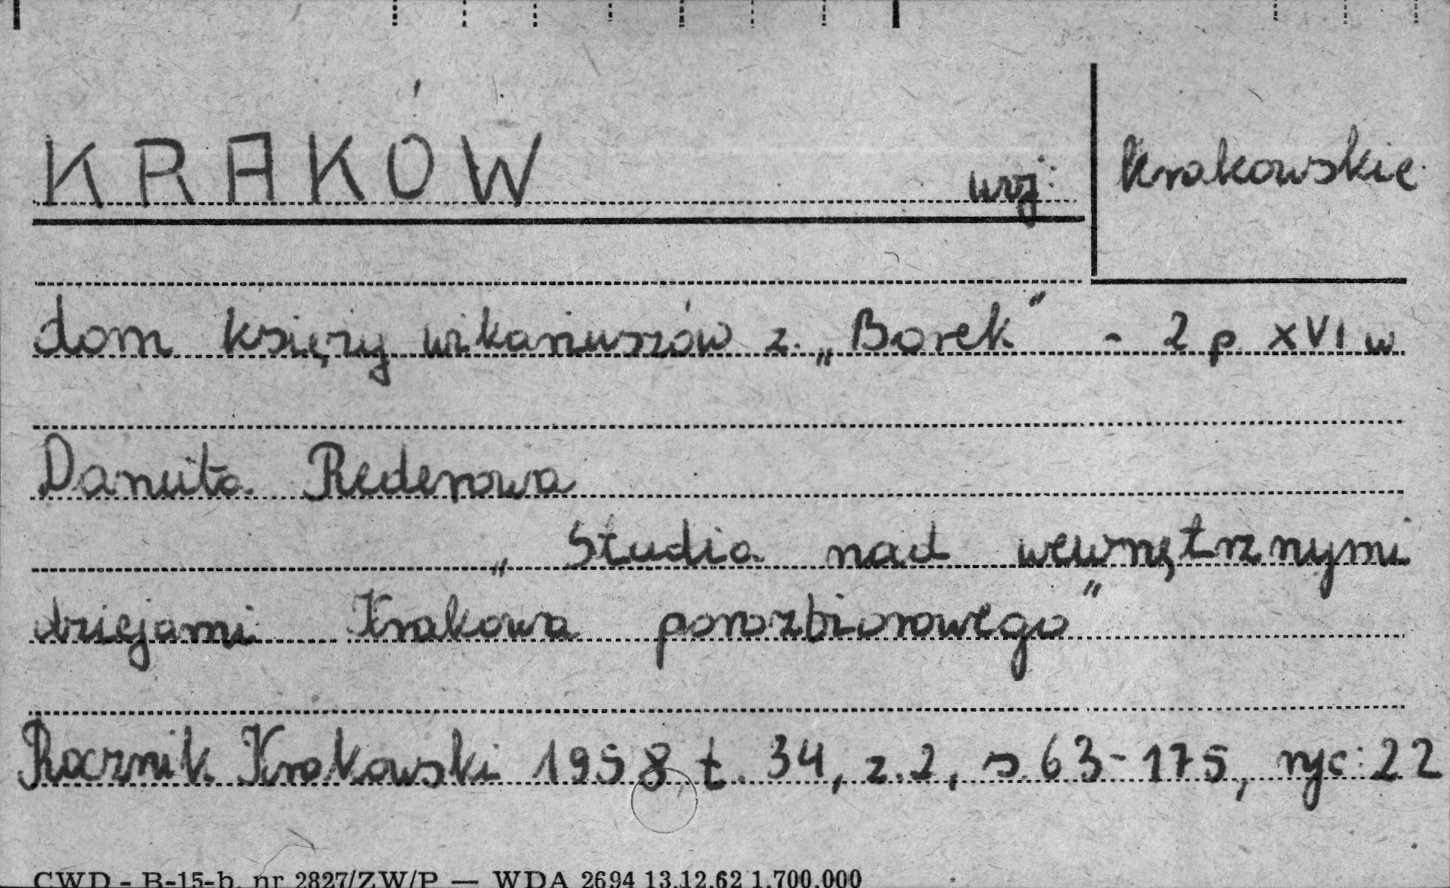 KRAKÓW woj: krakowskie
dom księży wikariuszów z. „Borek" - 2 p XVI w
Danuta Rederowa
„Studia nad wewnętrznymi
dziejami Krakowa porozbiorowego"
Rocznik Krakowski 1958, t. 34, z. 2, s. 63-175, ryc: 22
CWD - B-15-b. nr 2827/ZW/P — WDA 2694 13.12.62 1.700.000